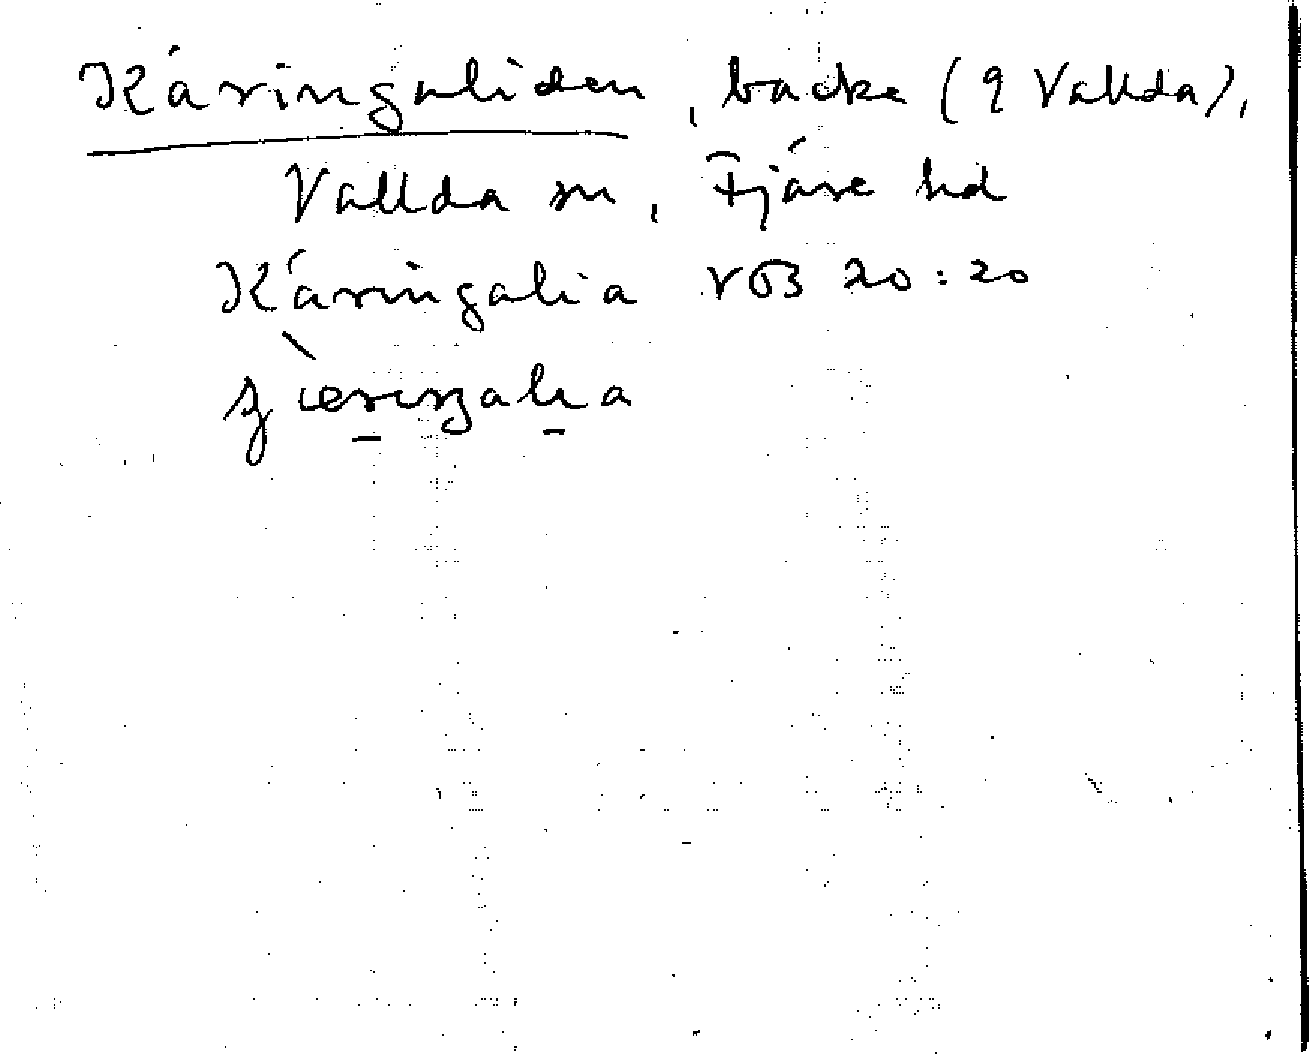 Käringaliden, backe (9 Vallda),
Vallda sn, Fjäre hd
Käringalia VOB 20:20